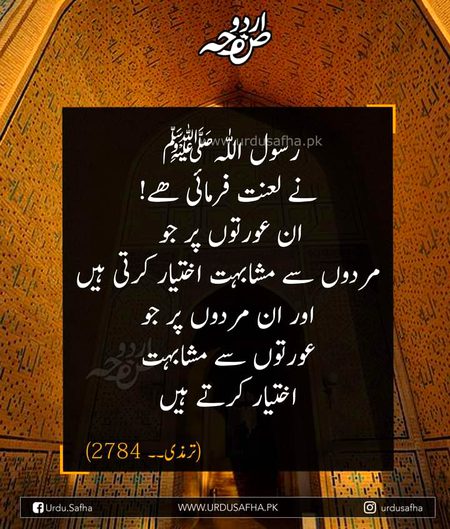 اردو صفحہ
www.urdusafha.pk
رسول اللہ ﷺ
نے لعنت فرمائی ھے!
ان عورتوں پر جو
مردوں سے مشابہت اختیار کرتی ہیں
اور ان مردوں پر جو
عورتوں سے مشابہت
اختیار کرتے ہیں
اردو صفحہ
(ترمذی۔۔ 2784)
Urdu.Safha
WWW.URDUSAFHA.PK
urdusafha